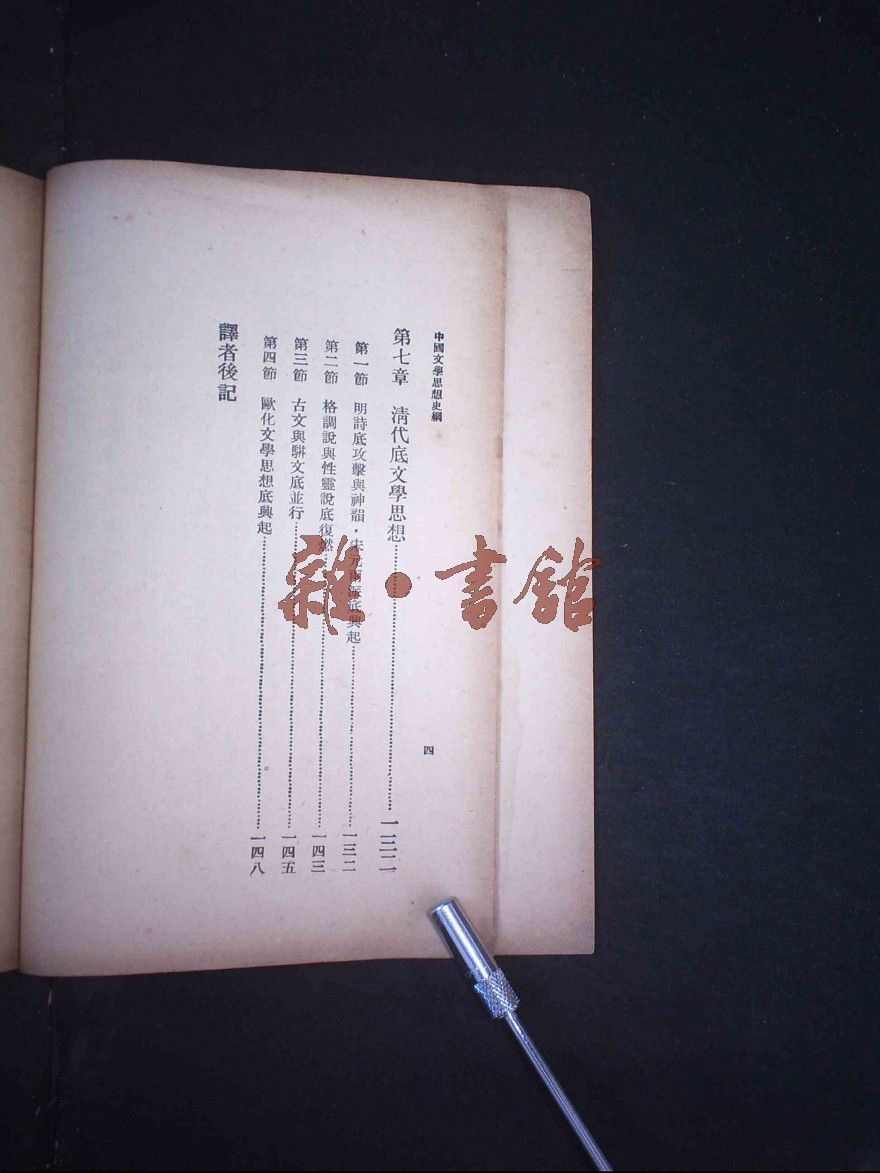 中國文學思想史綱
四
第七章　淸代底文學思想……一三二
第一節　明詩底攻擊與神韻・宋元兩派底興起……一三二
第二節　格調說與性靈說底復燃……一四三
第三節　古文與駢文底並行……一四五
第四節　歐化文學思想底興起……一四八
譯者後記
雜・書館